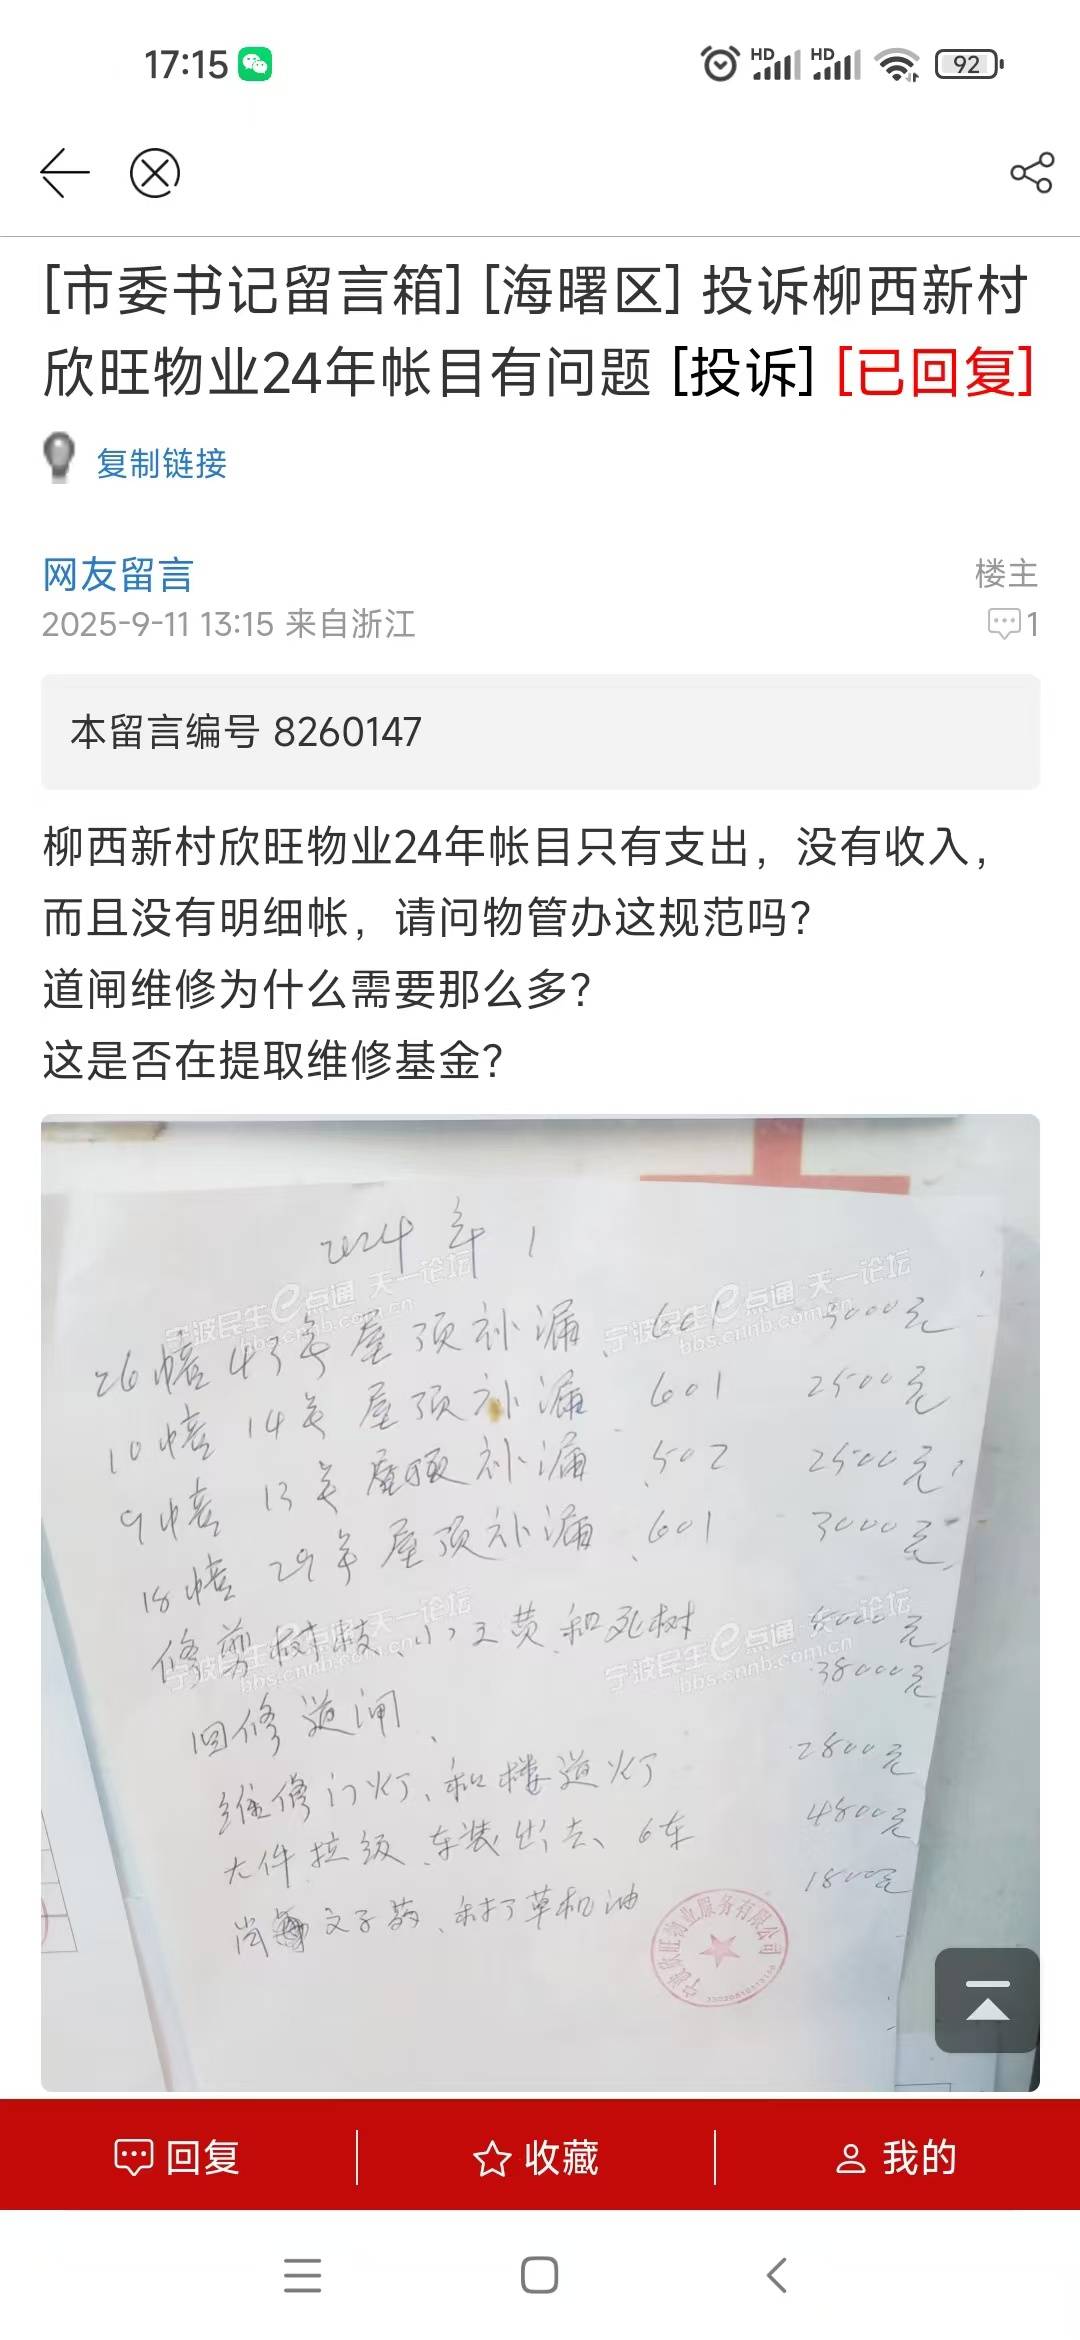 17:15
HD HD 92
[市委书记留言箱] [海曙区] 投诉柳西新村
欣旺物业24年帐目有问题 [投诉] [已回复]
复制链接
网友留言
楼主
2025-9-11 13:15 来自浙江
1
本留言编号 8260147
柳西新村欣旺物业24年帐目只有支出，没有收入，
而且没有明细帐，请问物管办这规范吗？
道闸维修为什么需要那么多？
这是否在提取维修基金？
2024年 1
宁波民生e点通 天一论坛
bbs.cnnb.com.cn
宁波民生e点通 天一论坛
bbs.cnnb.com.cn
26幢 43号屋顶补漏、601 3000元
10幢 14号屋顶补漏 601 2500元
9幢 13号屋顶补漏、502 2500元
18幢 29号屋顶补漏、601 3000元
修剪树枝、小工费、和死树 5000元
宁波民生e点通 天一论坛
bbs.cnnb.com.cn
宁波民生e点通 天一论坛
bbs.cnnb.com.cn
回修道闸、 38000元
维修门灯、和楼道灯 2800元
大件垃圾、车装出去、6车 4800元
蚊子药、和打草机油 1800元
宁波欣旺物业服务有限公司
回复
收藏
我的